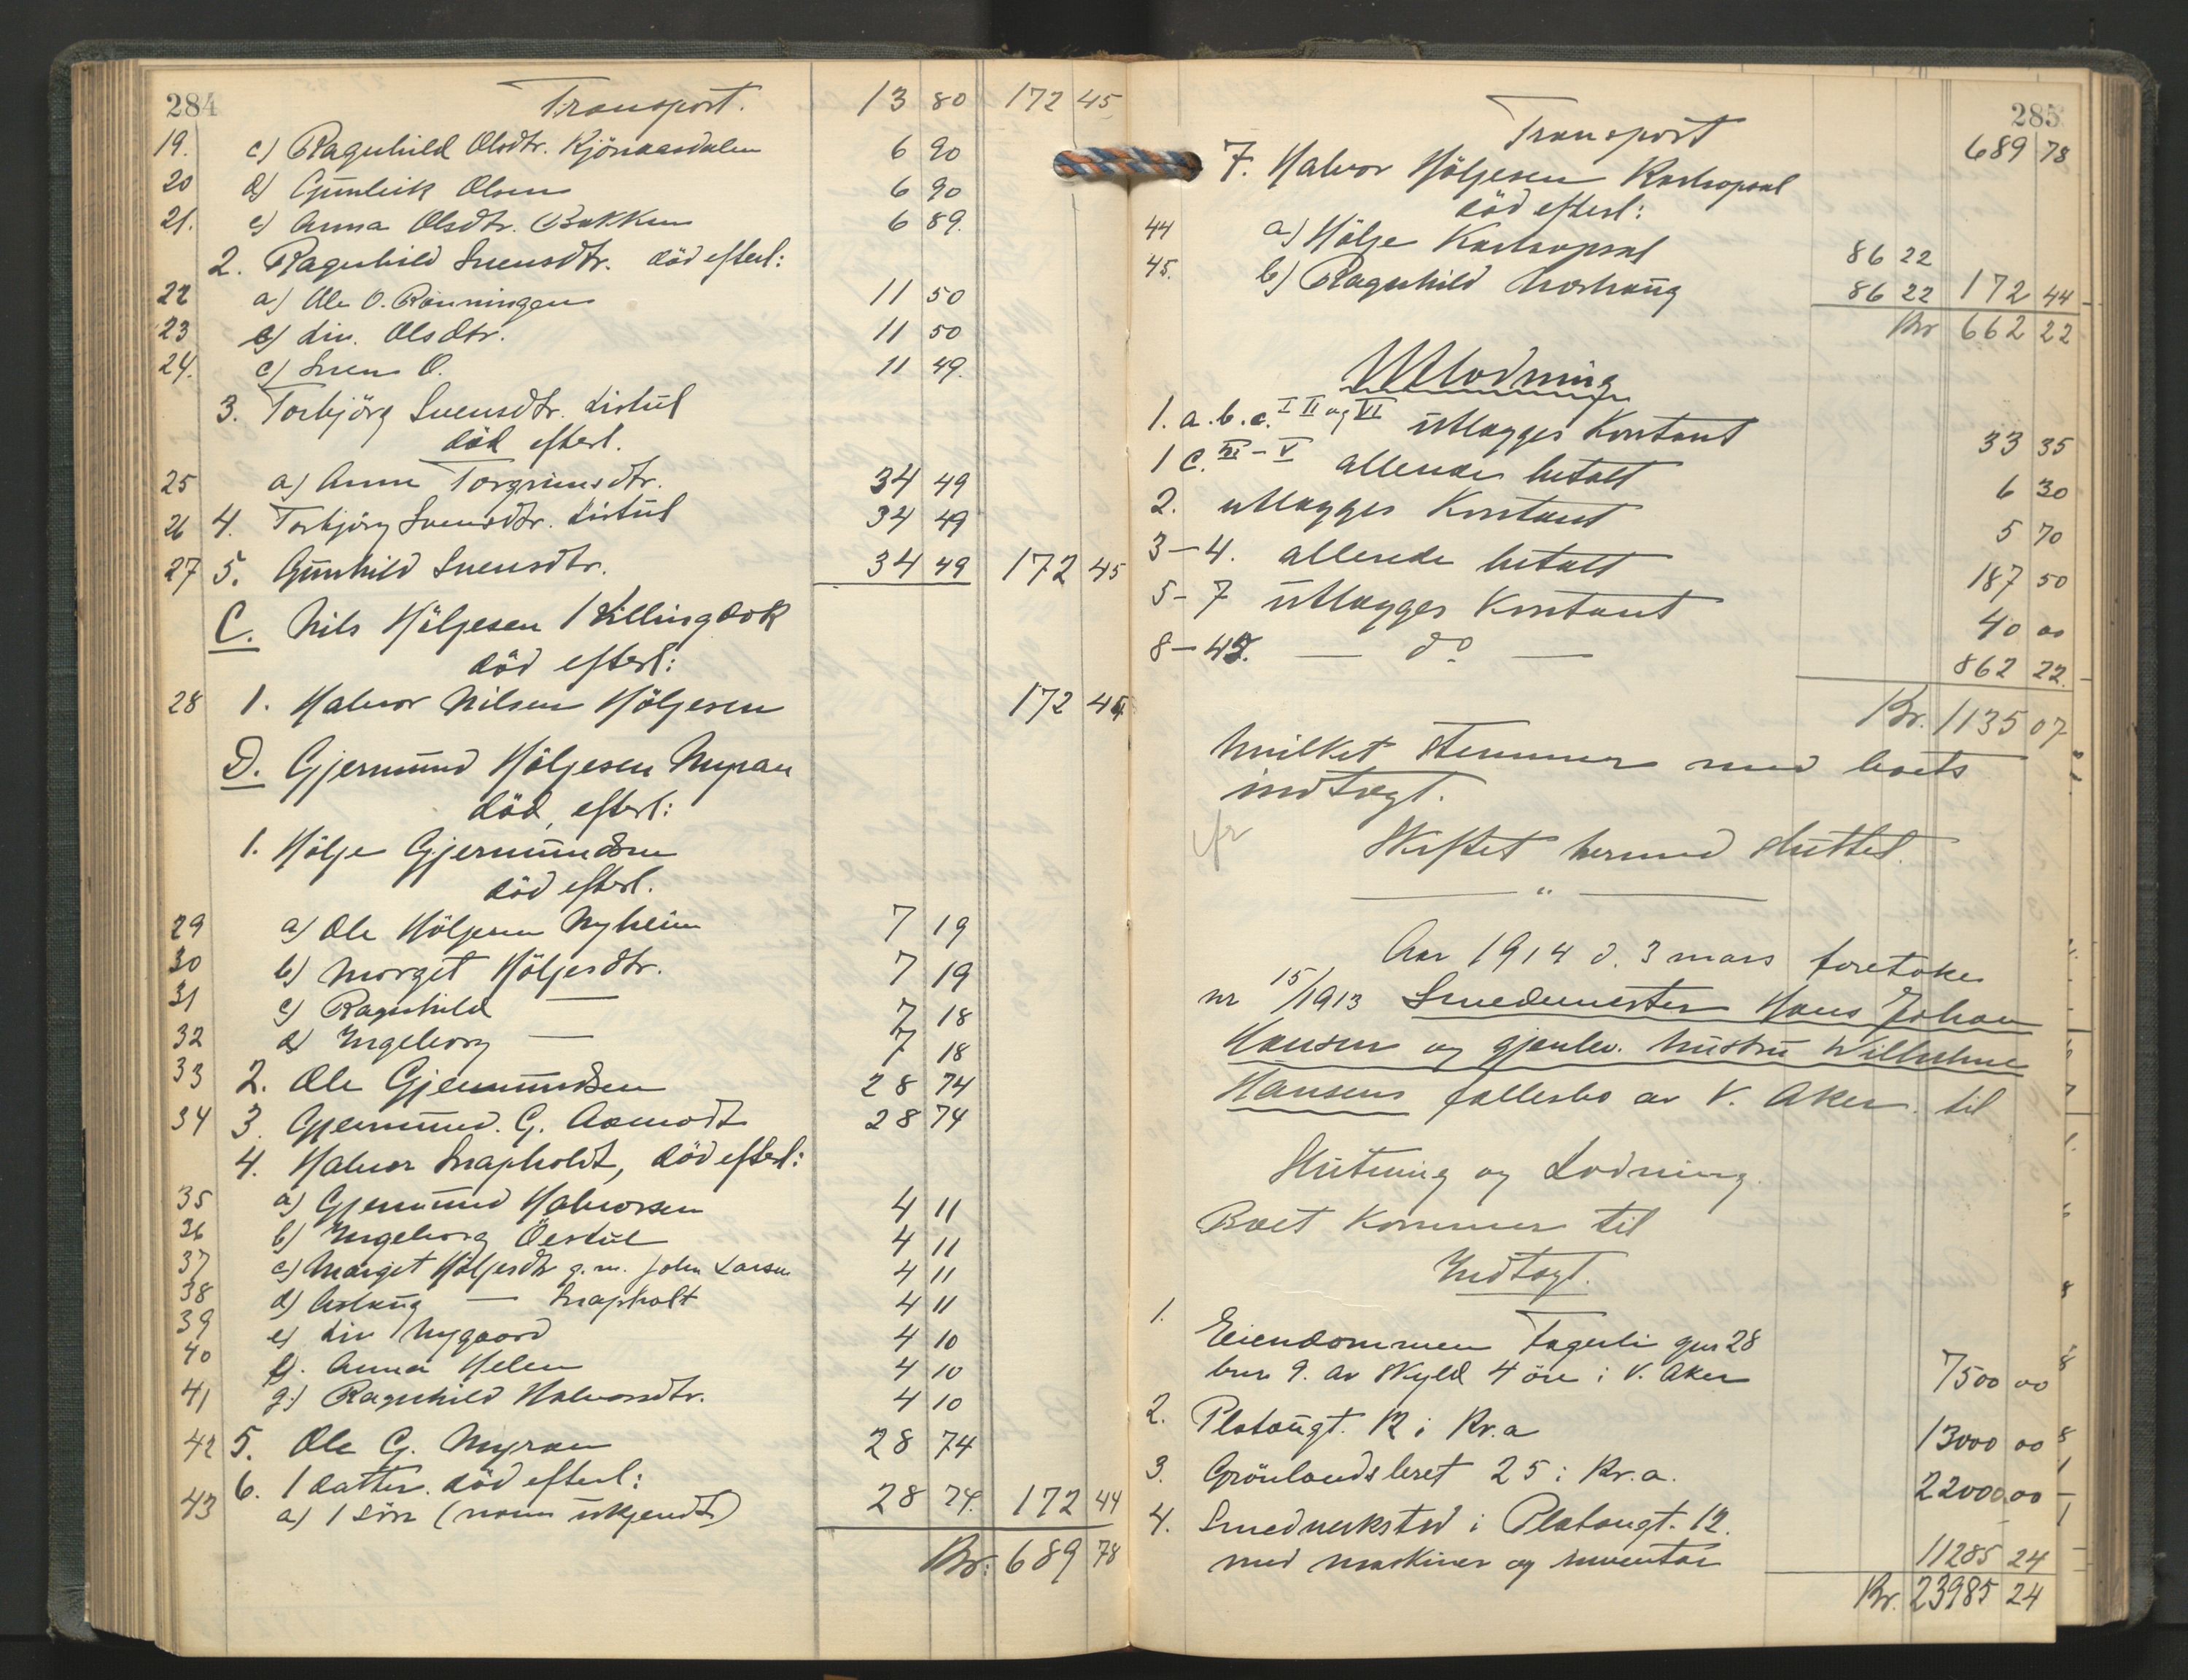 284
Transport. 13 80 172 45
19. c) Ragnhild Olsdtr. Kjönaasdalen 6 90
20 d) Gunleik Olsen 6 90
21. e) Anna Olsdtr. Bakken 6 89.
2. Ragnhild Svensdtr. död efterl:
22 a) Ole O. Rönningen 11 50
23 b) Liv. Olsdtr. 11 50
24. c) Sven O. 11 49.
3. Torbjörg Svensdtr. Listul
död efterl.
25 a) Anne Torgrimsdtr. 34 49
26 4. Torbjörg Svensdtr. Listul 34 49
27 5. Gunhild Svensdtr. 34 49 172 45
C. Nils Höljesen Killingdok
död efterl:
28 1. Halvor Nilsen Höljesen 172 44
D. Gjermund Höljesen Myran
död, efterl:
1. Hölje Gjermundsen
död efterl.
29 a) Ole Höljesen Nyheim 7 19
30 b) Morget Höljesdtr. 7 19
31 c) Ragnhild — 7 18
32 d) Ingeborg — 7 18
33 2. Ole Gjermundsen 28 74
34 3. Gjermund. G. Aamodt 28 74
4. Halvor Snapholdt, död efterl:
35 a) Gjermund Halvorsen 4 11
36 b) Ingeborg Östul 4 11
37 c) Marget Höljesdtr g.m. John Larsen 4 11
38 d) Aslaug — Snapholt 4 11
39 e) Liv Nygaard 4 10
40 f). Anna Helen 4 10
41 g) Ragnhild Halvorsdtr. 4 10
42 5. Ole G. Myran 28 74
6. 1 datter. död efterl:
43 a) 1 sön (navn ukjendt) 28 74. 172 44
Kr: 689 78
285
Transport 689 78
7. Halvor Höljesen
död efterl:
44 a) Hölje 86 22
45. b) Ragnhild 86 22 172 44
Kr 662 22
Utlodning
1. a. b. c. I II og VI utlægges Kontant 33 35
1 c. III – V allerede betalt 6 30
2. utlægges Kontant 5 70
3–4. allerede betalt 187 50
5–7 utlægges Kontant 40 00
8–45. — do — 862 22.
Kr. 1135 07
hvilket stemmer med boets
indtægt.
Skiftet hermed sluttet.
— " —
Aar 1914 d. 3 mars foretokes
nr 15/1913 Smedemester Hans Johan
Hansen og gjenlev. hustru Wilhelmine
Hansens fællesbo av V. Aker. til
Slutning og Lodning.
Boet kommer til
Indtægt.
1. Eiendommen Fagerli gnr 28
bnr. 9. av skyld 4 öre i V. Aker 7500 00
2. Platougt. 12 i Kr.a 13000 00
3. Grönlandsleret 25 i Kr.a. 22000 00
4. Smedverksted i Platougt. 12.
med maskiner og inventar 11285 24
Kr. 23985 24